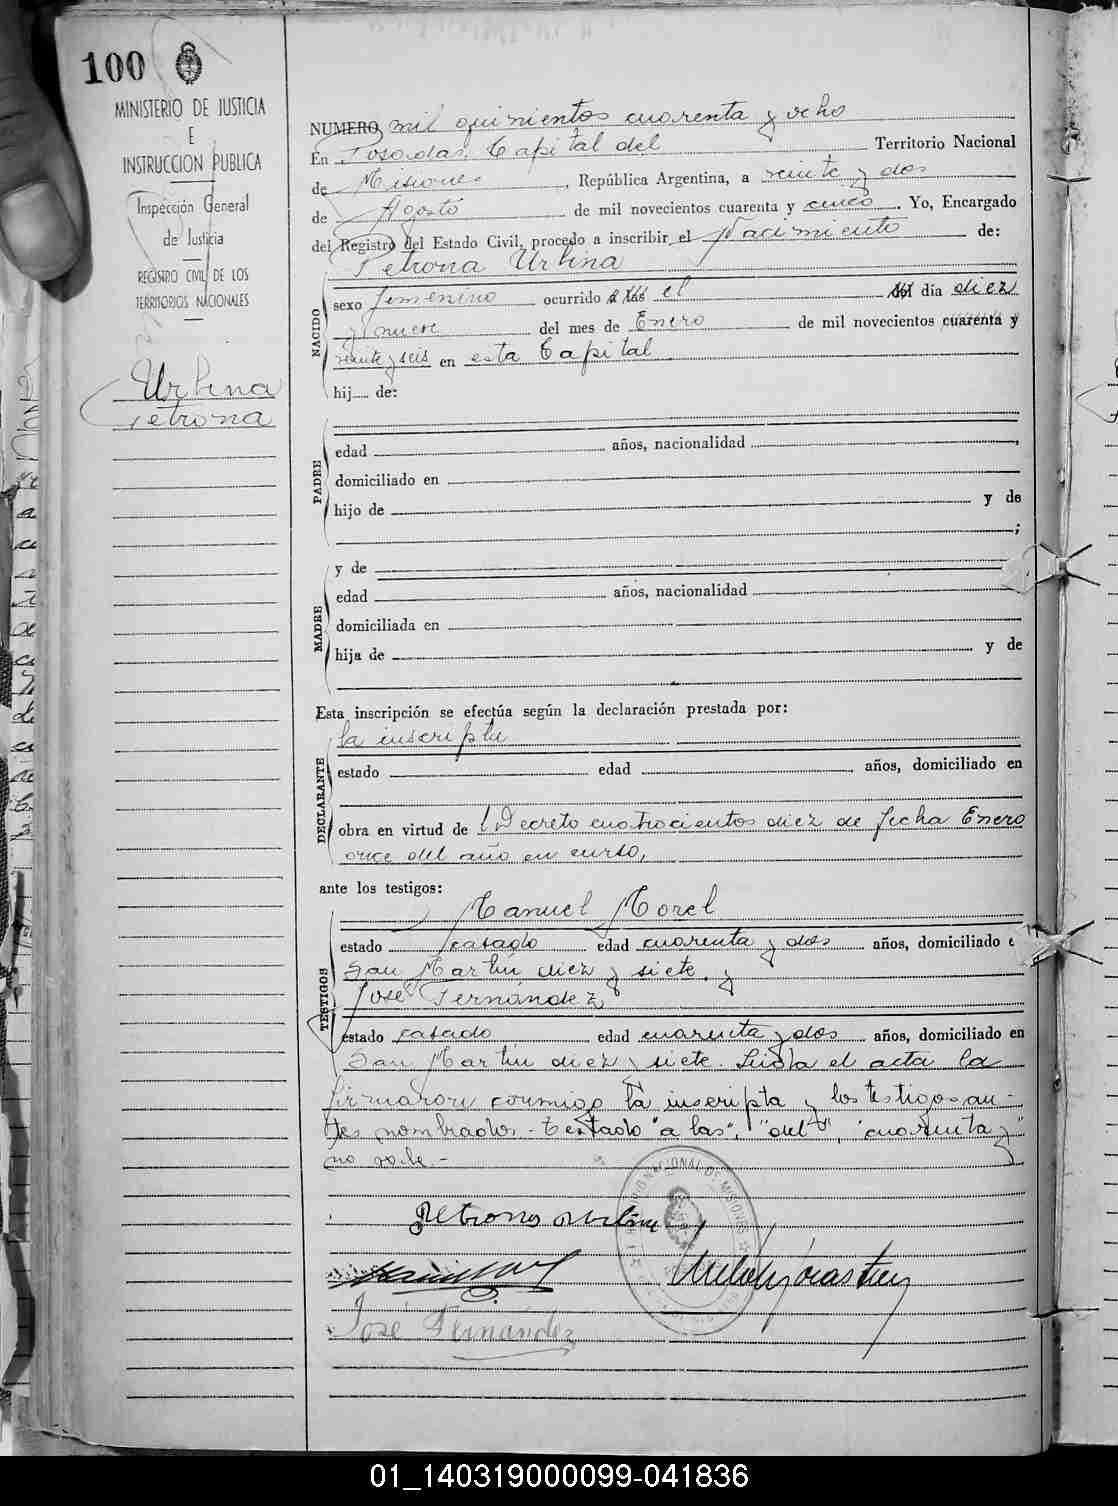 100
MINISTERIO DE JUSTICIA
E
INSTRUCCION PUBLICA
Inspección General
de Justicia
REGISTRO CIVIL DE LOS
TERRITORIOS NACIONALES
Urbina
Petrona
NUMERO mil quinientos cuarenta y ocho
En Posadas, Capital del Territorio Nacional
de Misiones, República Argentina, a veinte y dos
de Agosto de mil novecientos cuarenta y cinco. Yo, Encargado
del Registro del Estado Civil, procedo a inscribir el Nacimiento de:
Petrona Urbina
NACIDO
sexo femenino ocurrido a las el del día diez
y nueve del mes de Enero de mil novecientos cuarenta y
veinte y seis en esta Capital
hij de:
PADRE
edad años, nacionalidad ,
domiciliado en
hijo de y de
;
MADRE
y de
edad años, nacionalidad
domiciliada en
hija de y de
Esta inscripción se efectúa según la declaración prestada por:
la inscripta
DECLARANTE
estado edad años, domiciliado en
obra en virtud de Decreto cuatrocientos diez de fecha Enero
once del año en curso,
ante los testigos:
TESTIGOS
Manuel Morel
estado casado edad cuarenta y dos años, domiciliado e
San Martín diez y siete, y
José Fernández
estado casado edad cuarenta y dos años, domiciliado en
San Martín diez y siete. Leida el acta la
firmaron conmigo la inscripta y los testigos an-
tes nombrados.- Testado "a las", "del", "cuarenta y"
no vale.-
Petrona Urbina
José Fernández
01_140319000099-041836